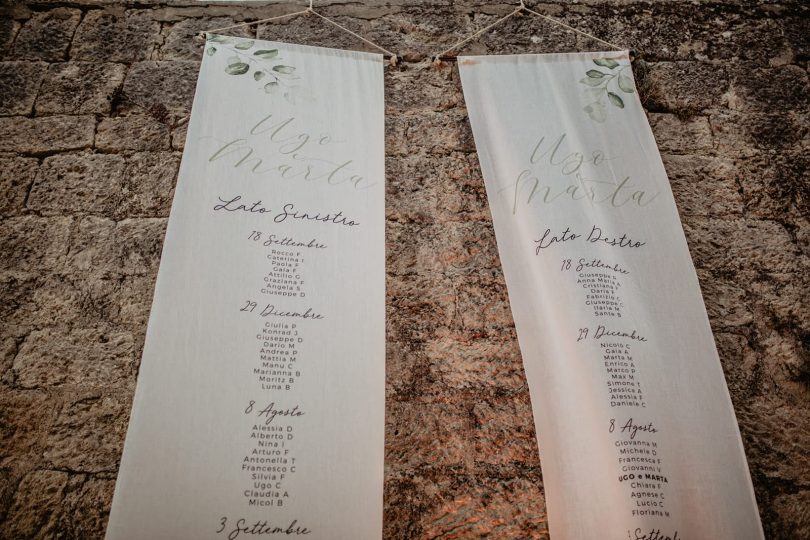 Ugo
e
Marta
Lato Sinistro
18 Settembre
Rocco F
Caterina I
Paola F
Gaia F
Attilio G
Graziana F
Angela S
Giuseppe D
29 Dicembre
Giulia P
Konrad J
Giuseppe D
Dario M
Andrea P
Mattia M
Manu C
Marianna B
Moritz B
Luna B
8 Agosto
Alessia D
Alberto D
Nina I
Arturo F
Antonella T
Francesco C
Silvia F
Ugo C
Claudia A
Micol B
3 Settembre
Ugo
e
Marta
Lato Destro
18 Settembre
Giuseppe D
Anna Maria
Cristiana
Daria F
Fabrizio C
Giuseppe
Ilaria M
Santa B
29 Dicembre
Nicolò C
Gaia A
Marta M
Enrico A
Marco P
Max M
Simone T
Jessica A
Alessia F
Daniele C
8 Agosto
Giovanna M
Michele D
Francesca F
Giovanni V
UGO e MARTA
Chiara F
Agnese C
Lucio C
Floriana M